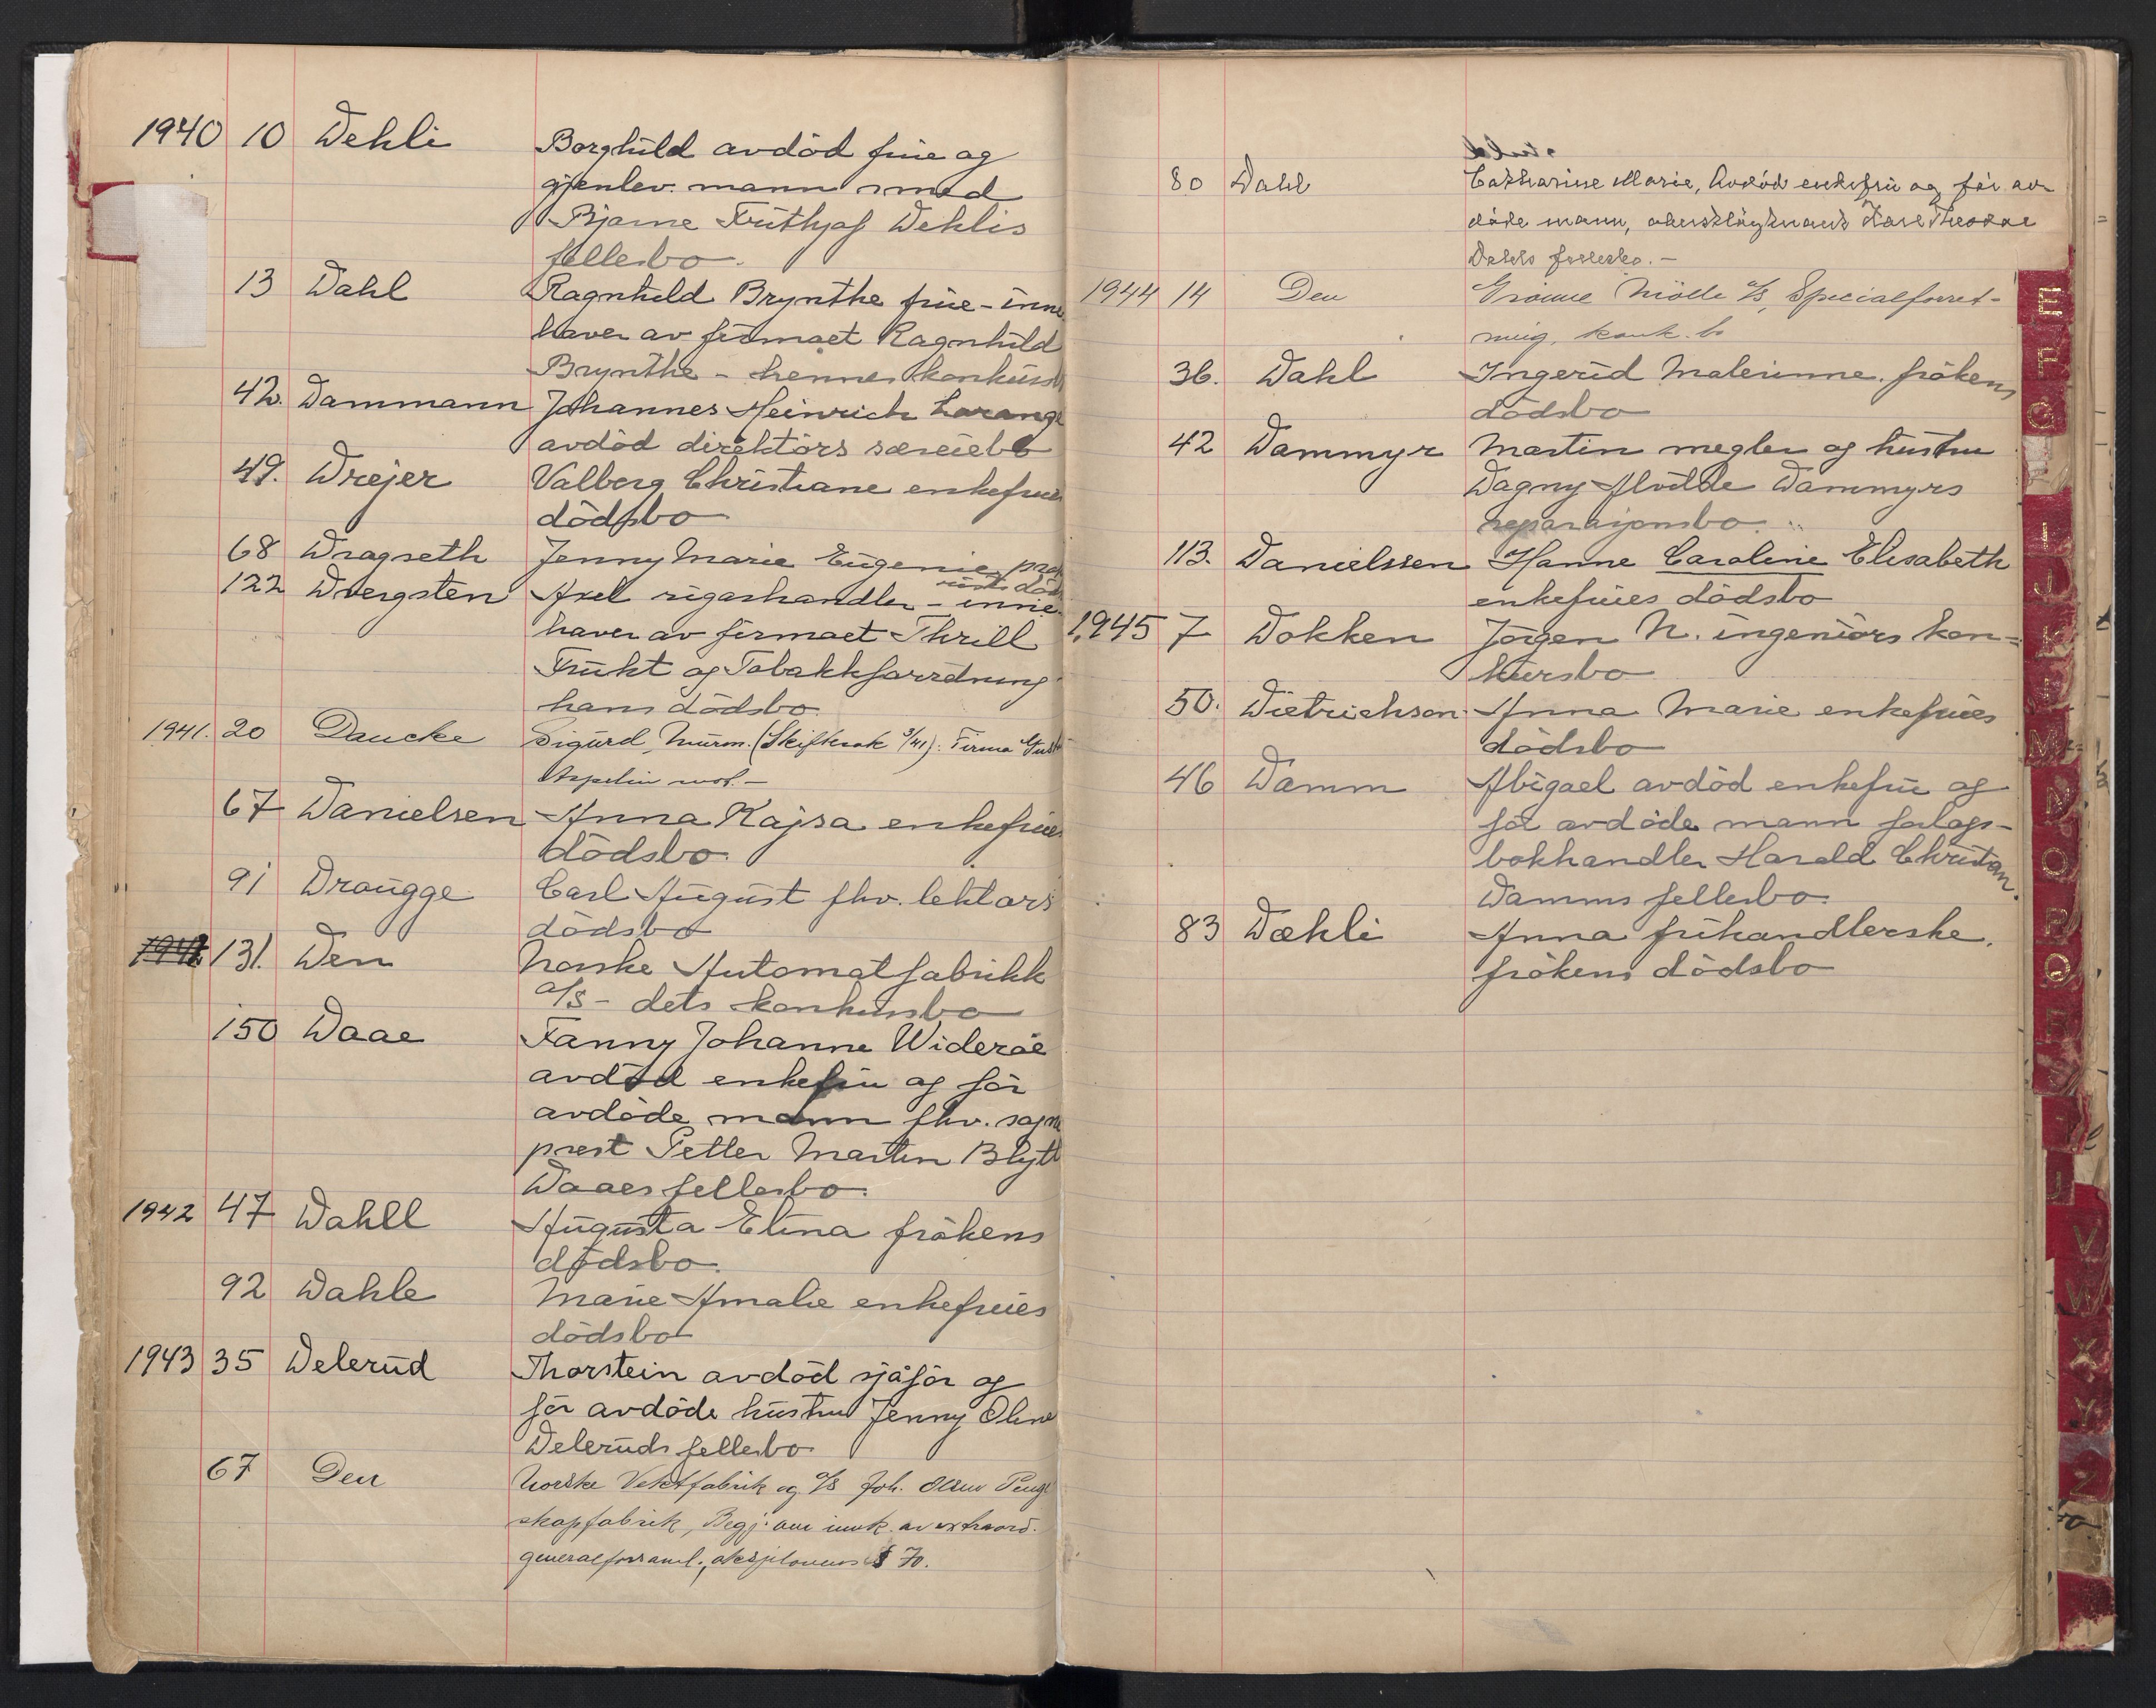 1940 10 Dehli Borghild avdöd frue og
gjenlev. mann smed
Bjarne Frithjof Dehlis
fellesbo.
13 Dahl Ragnhild Brynthe frue - inne
haver av firmaet Ragnhild
Brynthe - hennes konkurs
42. Dammann Johannes Heinrich Lorange
avdöd direktörs særeiebo
49. Drejer Valborg Christiane enkefrues
dödsbo
68 Dragseth Jenny Marie Eugenie
122 Dvergsten Axel sigarhandler - inne-
haver av firmaet Thrill
Frukt og Tobakkforretning
hans dödsbo
1941. 20 Daucke Sigurd, murm. (Skiftesak 9/41): Firma
Aspelin mot. -
67 Danielsen Anna Kajsa enkefrues
dödsbo.
91 Drougge Carl August fhv. lektors
dödsbo
131. Den Norske Automatfabrikk
a/s - dets konkursbo
150 Daae Fanny Johanne Wideröe
avdöd enkefru og för
avdöde mann fhv. sogne
prest Petter Martin Blytt
Daaes fellesbo.
1942 47 Dahll Augusta Elina frökens
dödsbo.
92 Dahle Marie Amalie enkefrues
dödsbo
1943 35 Delerud Thorstein avdöd sjåför og
för avdöde hustru Jenny Oline
Deleruds fellesbo
67 Den Norske Vektfabrik og A/S Joh. Olsens Penge
skapfabrik, Begj. om innk. av extraord.
generalforsaml., aksjelovens § 70.
80 Dahl Catharine Marie, Avdöd enkefru og för av-
döde mann, oberstlöytnant Karl Theodor
Dahls fellesbo. -
1944 14 Den Grönne Mölle A/S, Specialforret-
ning, konk. bo
36. Dahl Ingerid Malerinne. frökens
dödsbo
42 Dammyr Martin megler og hustru
Dagny Alvilde Dammyrs
separasjonsbo.
113. Danielssen Hanne Caroline Elisabeth
enkefrues dödsbo
1945 7 Dokken Jörgen N. ingeniörs kon-
kursbo
50. Dietrichson Anna Marie enkefrues
dödsbo
46 Damm Abigael avdöd enkefru og
för avdöde mann forlags-
bokhandler Harald Christian
Damms fellesbo.
83 Dæhli Anna frühandlerske.
frökens dödsbo
E
F
G
I
J
K
M
N
O
P
Q
V
W
X
Y
Z